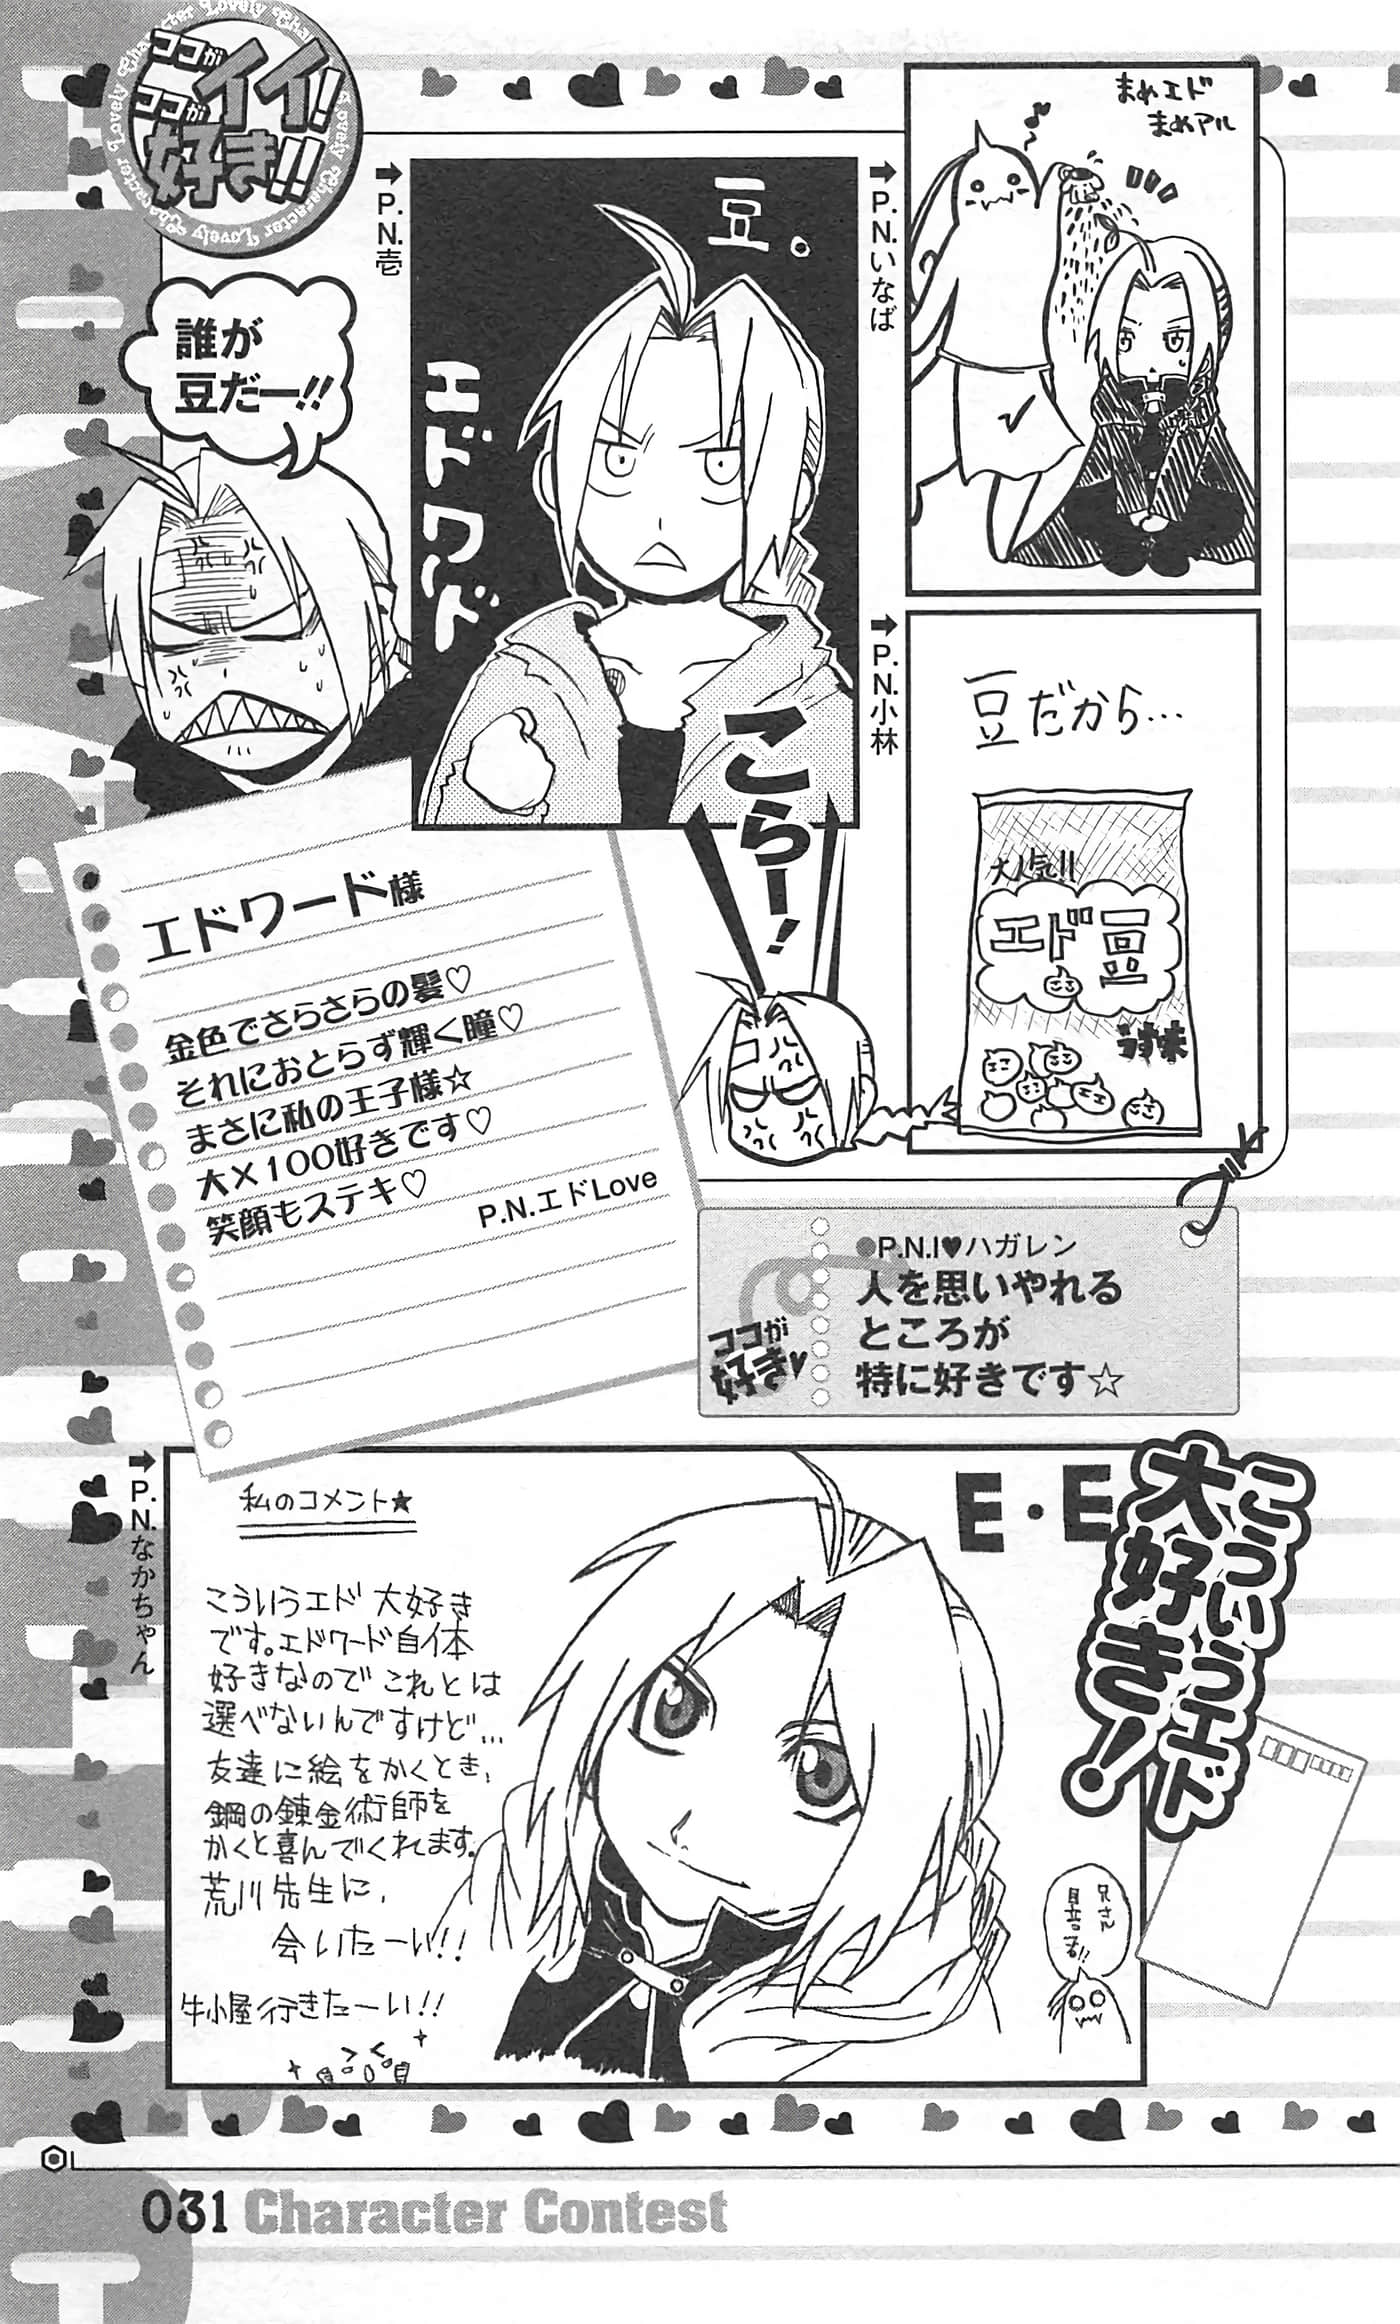 ココがイイ!
ココが好き!!
Lovely Character Lovely Character Lovely Character
まめエド
まめアル
➡P.N.いなば
➡P.N.壱
豆。
エドワド
こらー!
誰が
豆だー!!
➡P.N.小林
豆だから…
大人気!!
エド豆
うす味
エドワード様
金色でさらさらの髪♡
それにおとらず輝く瞳♡
まさに私の王子様☆
大×100好きです♡
笑顔もステキ♡
P.N.エドLove
ココが
好き♥
●P.N.I♥ハガレン
人を思いやれる
ところが
特に好きです☆
こういうエド
大好き!
➡P.N.なかちゃん
E・E
私のコメント★
こういうエド 大好き
です。エドワード自体
好きなので これとは
選べないんですけど…
友達に絵をかくとき、
鋼の錬金術師を
かくと喜んでくれます。
荒川先生に、
会いたーい!!
牛小屋行きたーい!!
兄さん
031 Character Contest